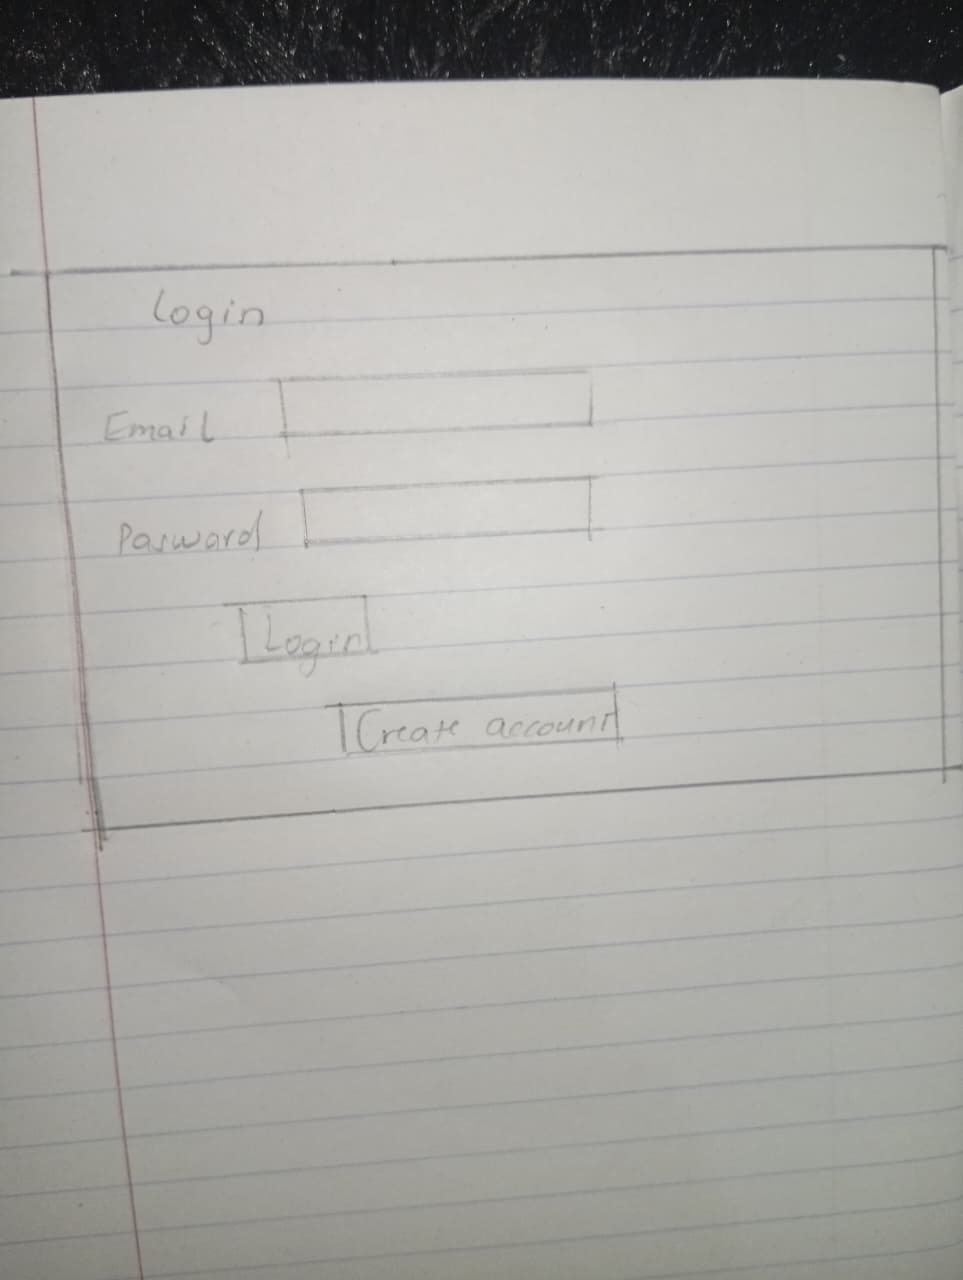 Login
Email
Pasword
Login
Create account